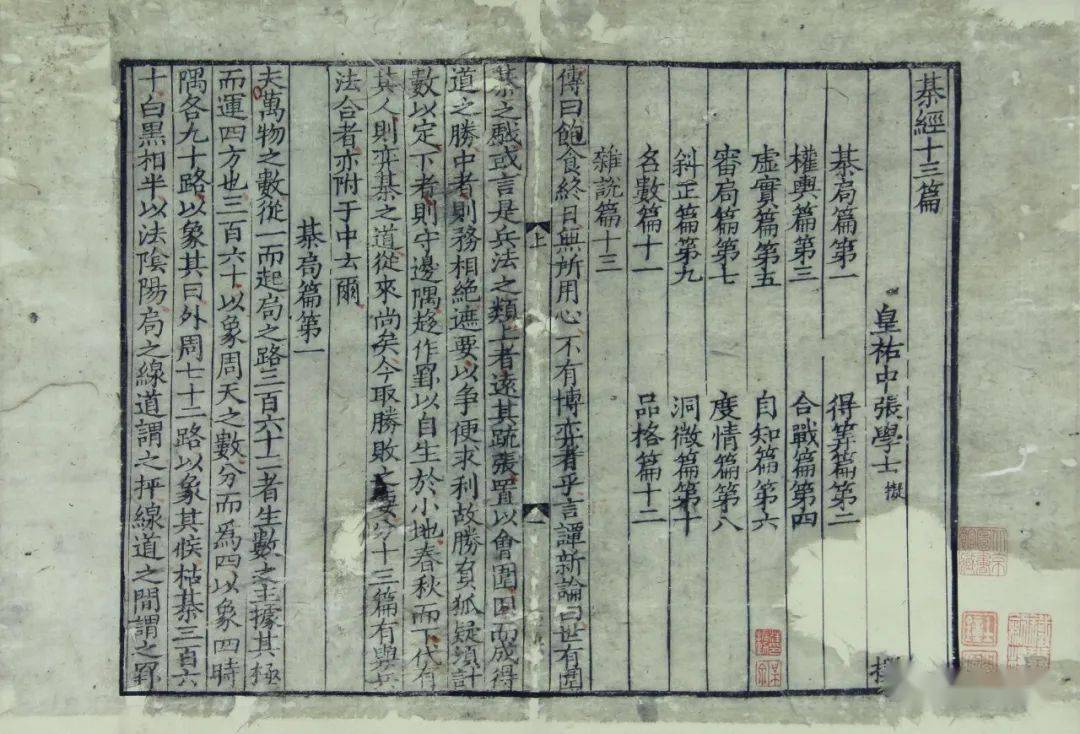 棊經十三篇
皇祐中張學士擬
棊局篇第一 得筭篇第二
權輿篇第三 合戰篇第四
虛實篇第五 自知篇第六
審局篇第七 度情篇第八
斜正篇第九 洞微篇第十
名數篇十一 品格篇十二
雜說篇十三
傳曰飽食終日無所用心不有博弈者乎言譚新論曰世有圍
上 一
棊之戲或言是兵法之類上者遠其疏張置以會圍因而成得
道之勝中者則務相絕遮要以争便求利故勝負狐疑須計
數以定下者則守邊隅趍作罫以自生於小地春秋而下代有
其人則弈棊之道從來尚矣今取勝敗之要分十三篇有與兵
法合者亦附于中云爾
棊局篇第一
夫萬物之數從一而起局之路三百六十一一者生數之主據其極
而運四方也三百六十以象周天之數分而爲四以象四時
隅各九十路以象其日外周七十二路以象其候枯棊三百六
十白黑相半以法陰陽局之線道謂之枰線道之間謂之罫